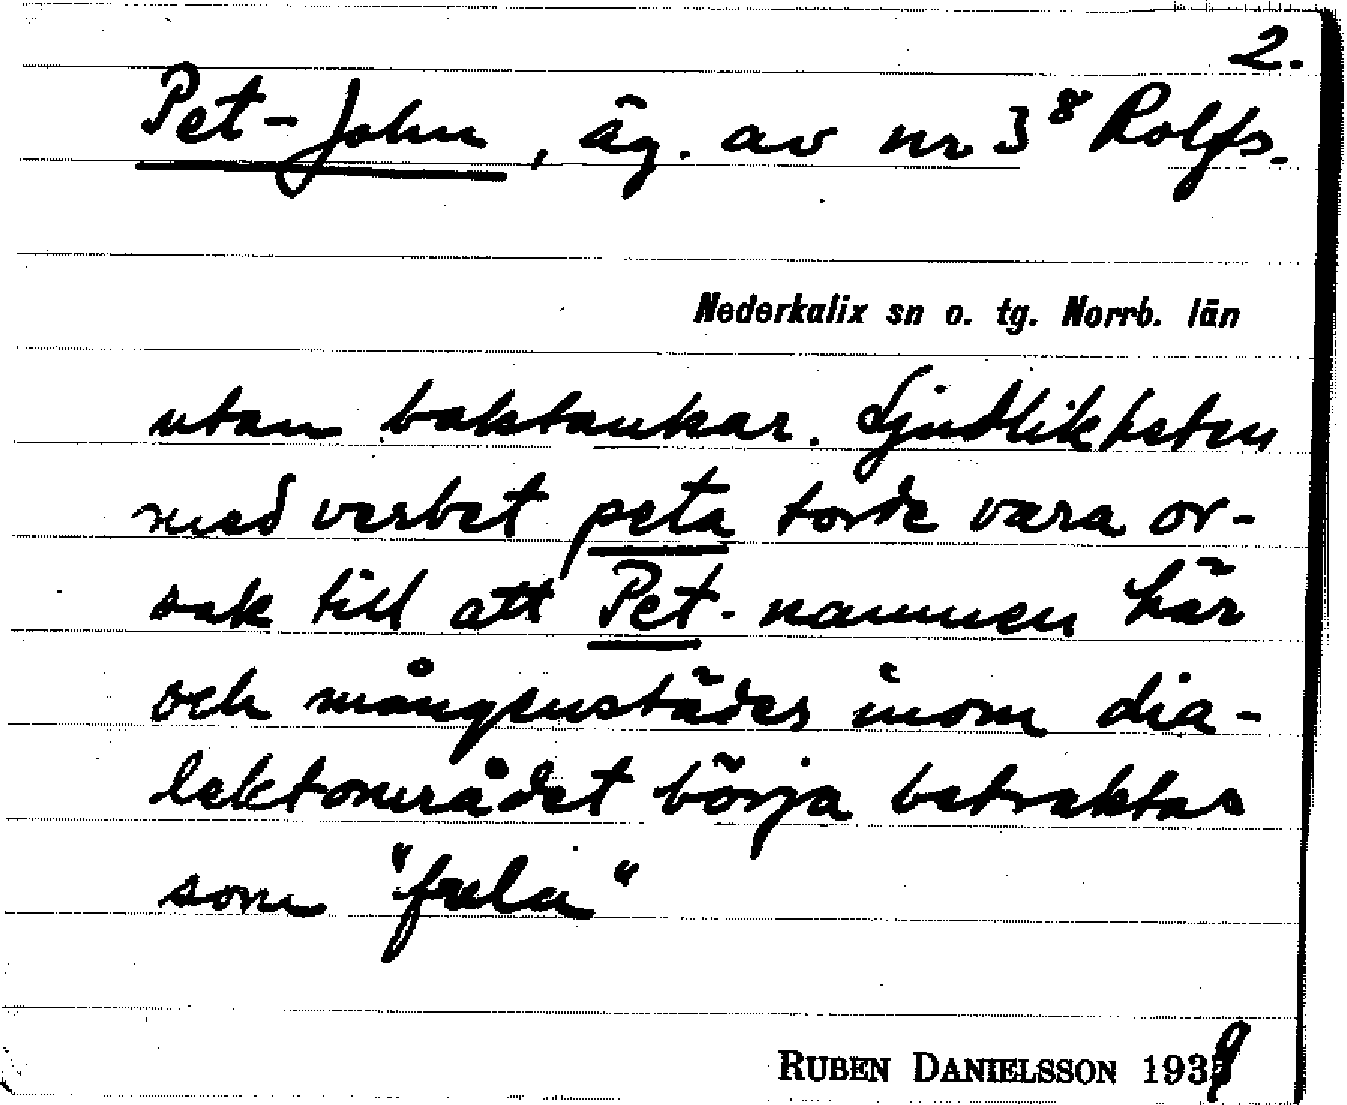 2.
Pet-John, äg. av nr 3⁸ Rolfs.
Nederkalix sn o. tg. Norrb. län
utan baktankar. Ljudlikheten
med verbet peta torde vara or-
sak till att Pet-namnen här
och mångenstädes inom dia-
lektområdet börja betraktas
som "fula"
RUBEN DANIELSSON 1939